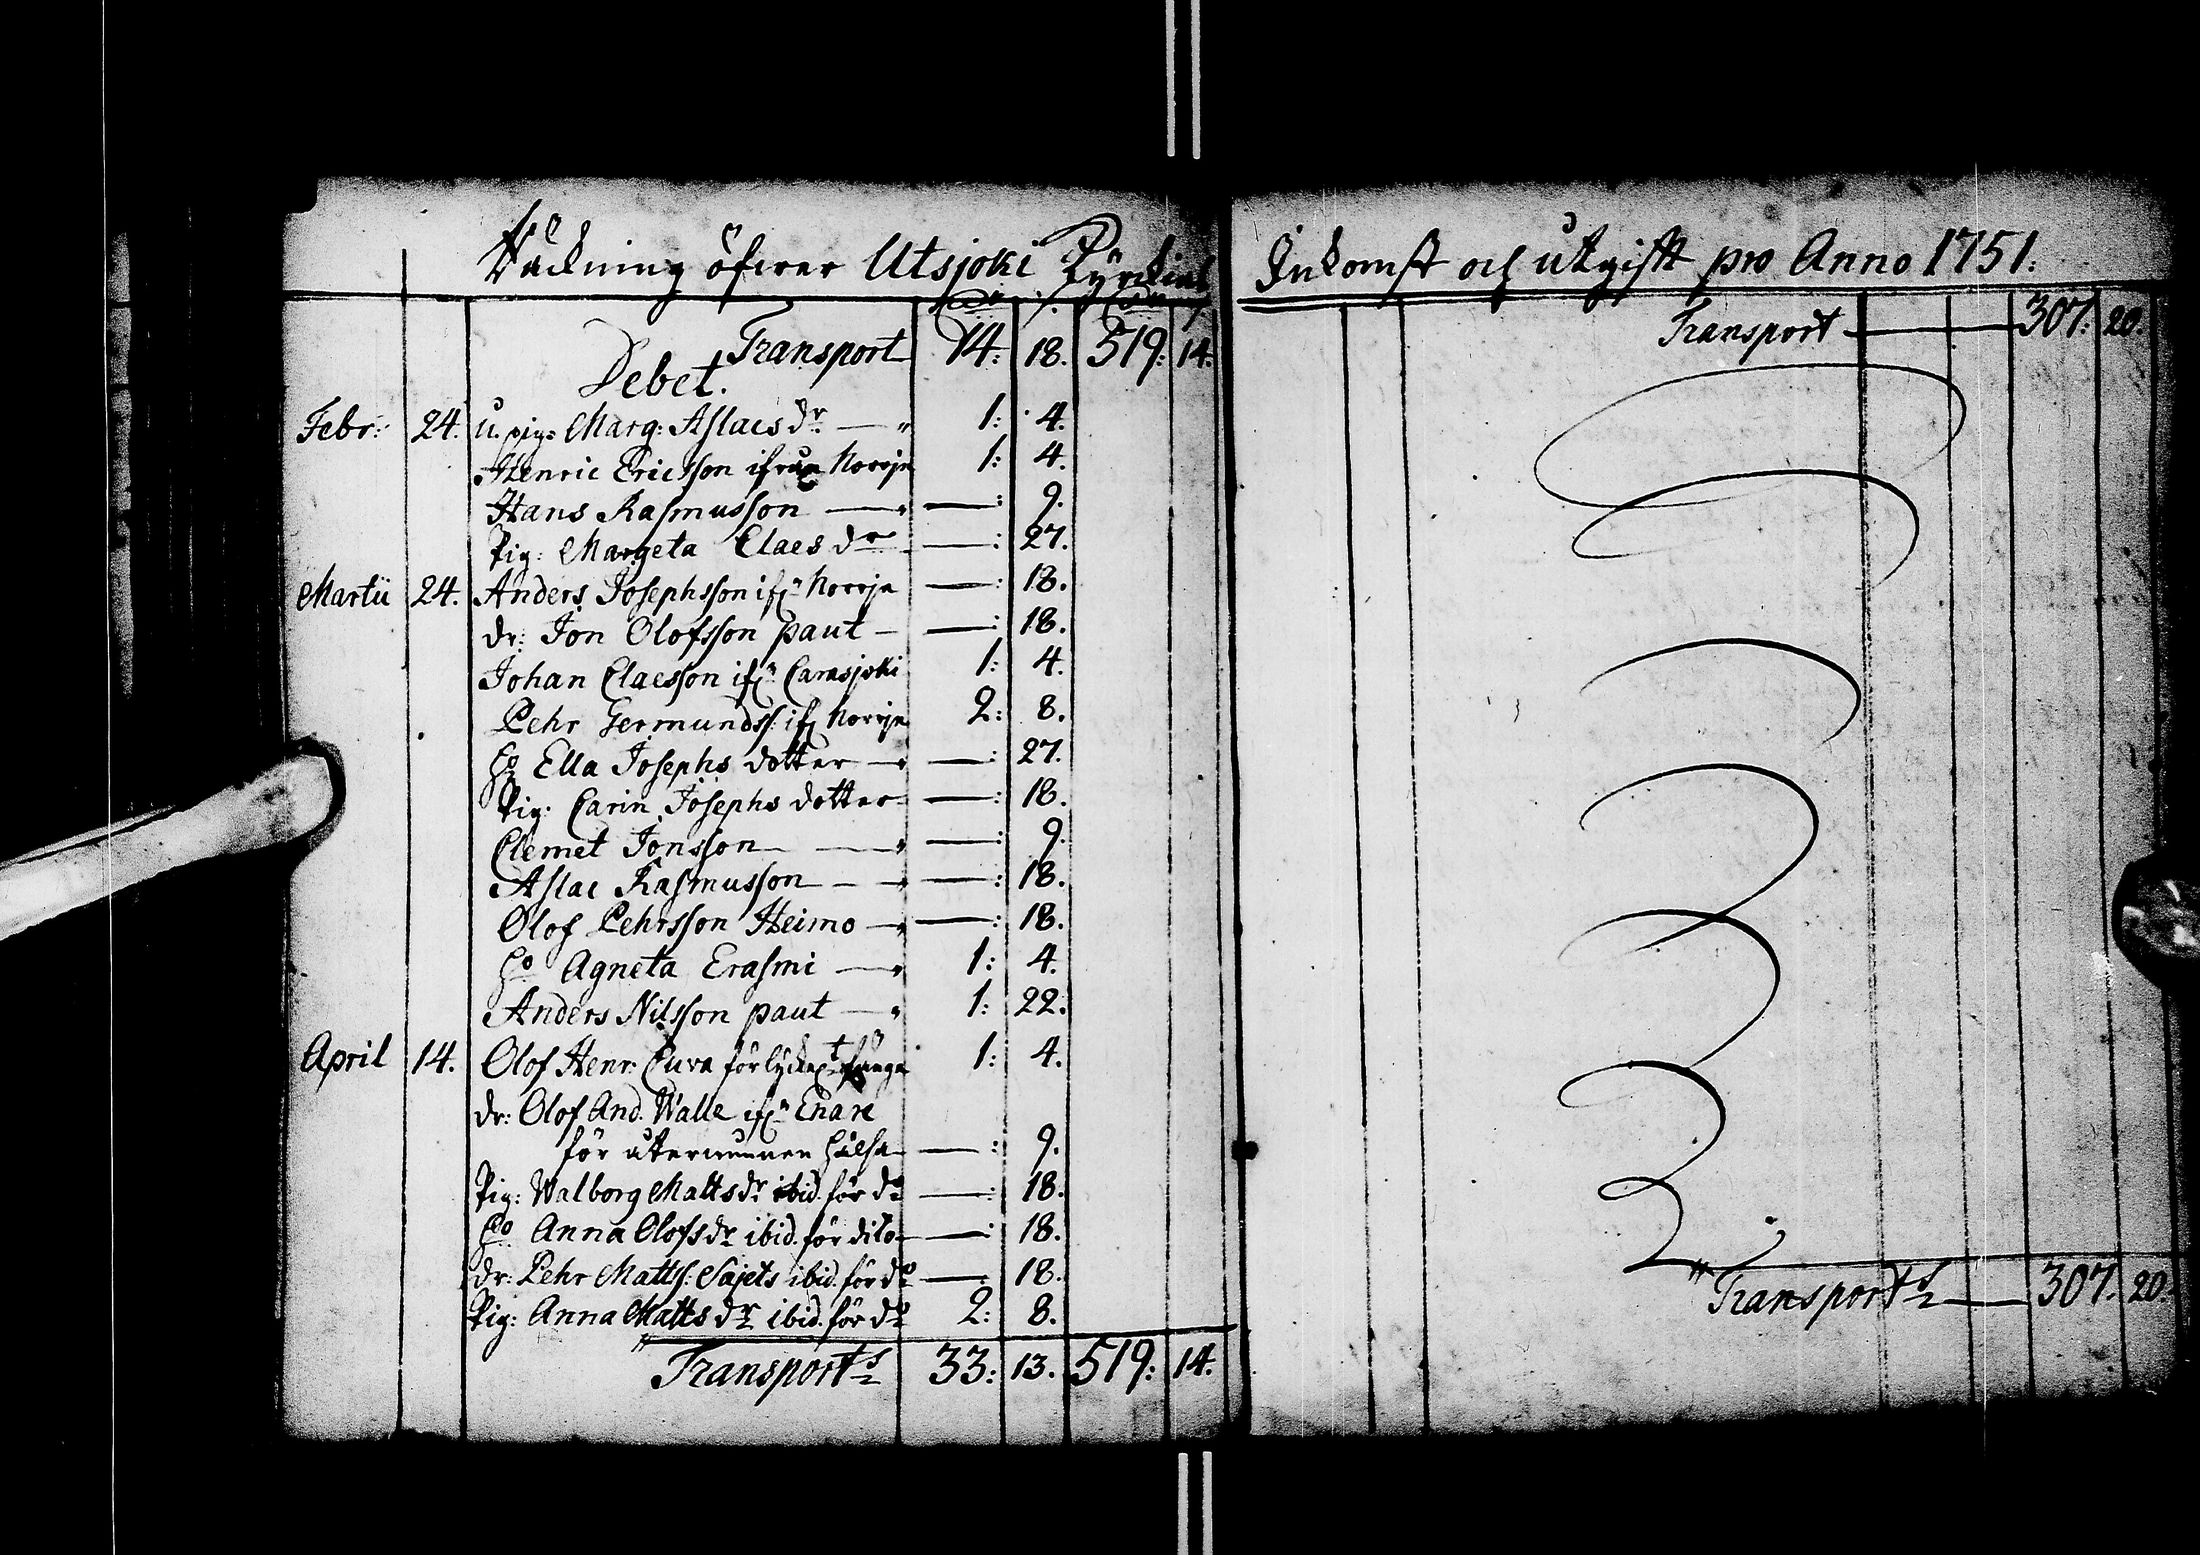 Räckning öfwer Utsjoki Kyrckias
Transport 14: 18. 519: 14.
Debet.
Febr: 24. u. pig: Marg: Aslacs dr — 1: 4.
Henric Ericsson ifrån Norrje 1: 4.
Hans Rasmusson — —: 9.
Pig: Margeta Claes dr —: 27.
Martii 24. Anders Josephsson ifr. Norrje —: 18.
dr: Jon Olofsson paut — —: 18.
Johan Claesson ifr. Carasjoki 1: 4.
Pehr Germundss. ifr Norrje 2: 8.
Ho Ella Josephs dotter — —: 27.
Pig: Carin Josephs dotter —: 18.
Clemet Jonsson — —: 9.
Aslac Rasmusson — —: 18.
Olof Pehrsson Heimo — —: 18.
Ho Agneta Erasmi — 1: 4.
Anders Nilsson paut — 1: 22.
April 14. Olof Henr. Cuva för lyckat fänge 1: 4.
dr: Olof And. Walle ifr. Enare
för återwunnen hälsa —: 9.
Pig: Walborg Matts dr ibid. för do —: 18.
Ho Anna Olofs dr ibid. för dito —: 18.
dr: Pehr Matts: Sajets ibid. för do —: 18.
Pig: Anna Matts dr ibid. för do 2: 8.
Transport 33: 13. 519: 14.
Inkomst och utgift pro Anno 1751:
Transport — 307: 20.
Transport — 307. 20.